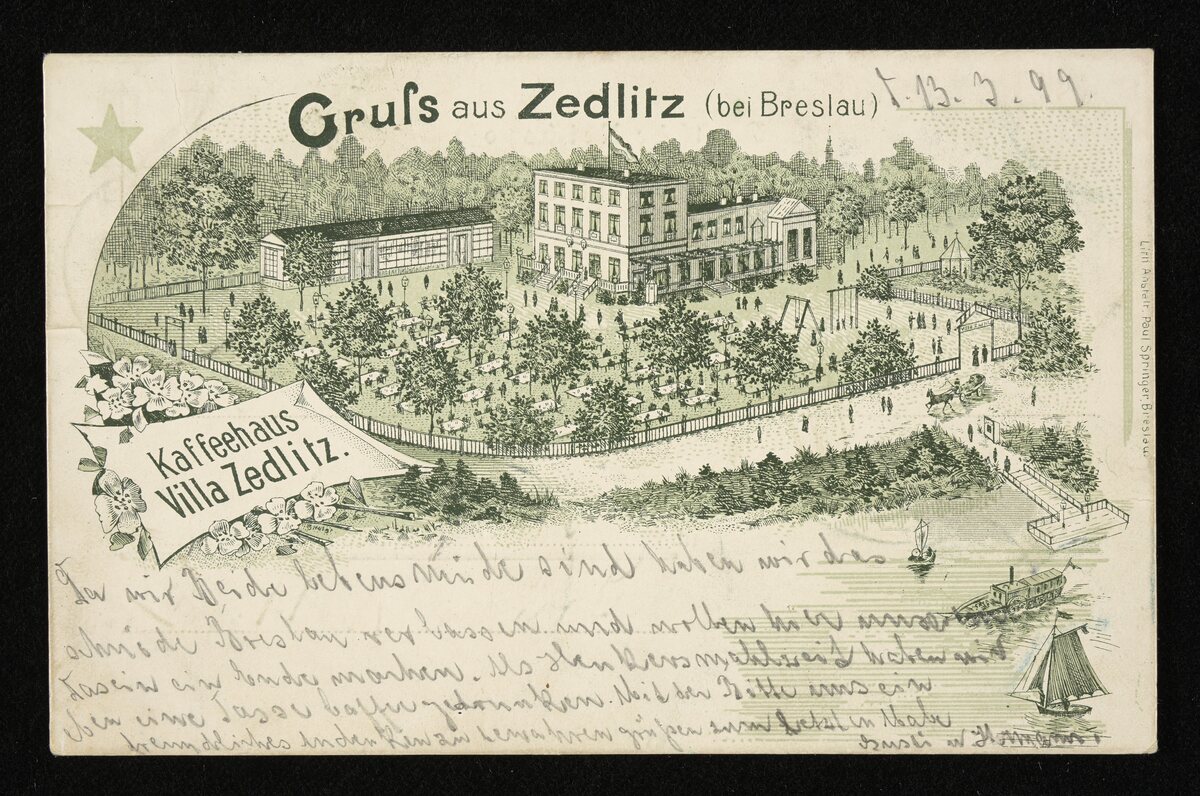 Gruſs aus Zedlitz (bei Breslau)
d. 13. 3. 99.
Kaffeehaus
Villa Zedlitz.
Lith. Anstalt Paul Springer, Breslau.
Da wir Beide lebens Müde sind haben wir das
schnöde Breslau verlassen und wollen hier unser
Dasein ein Ende machen. Als Henkersmahlzeit haben wir
eben eine Tasse Caffee getrunken. Mit der Bitte uns ein
freundliches Andenken zu bewahren grüßen zum Letzten Male